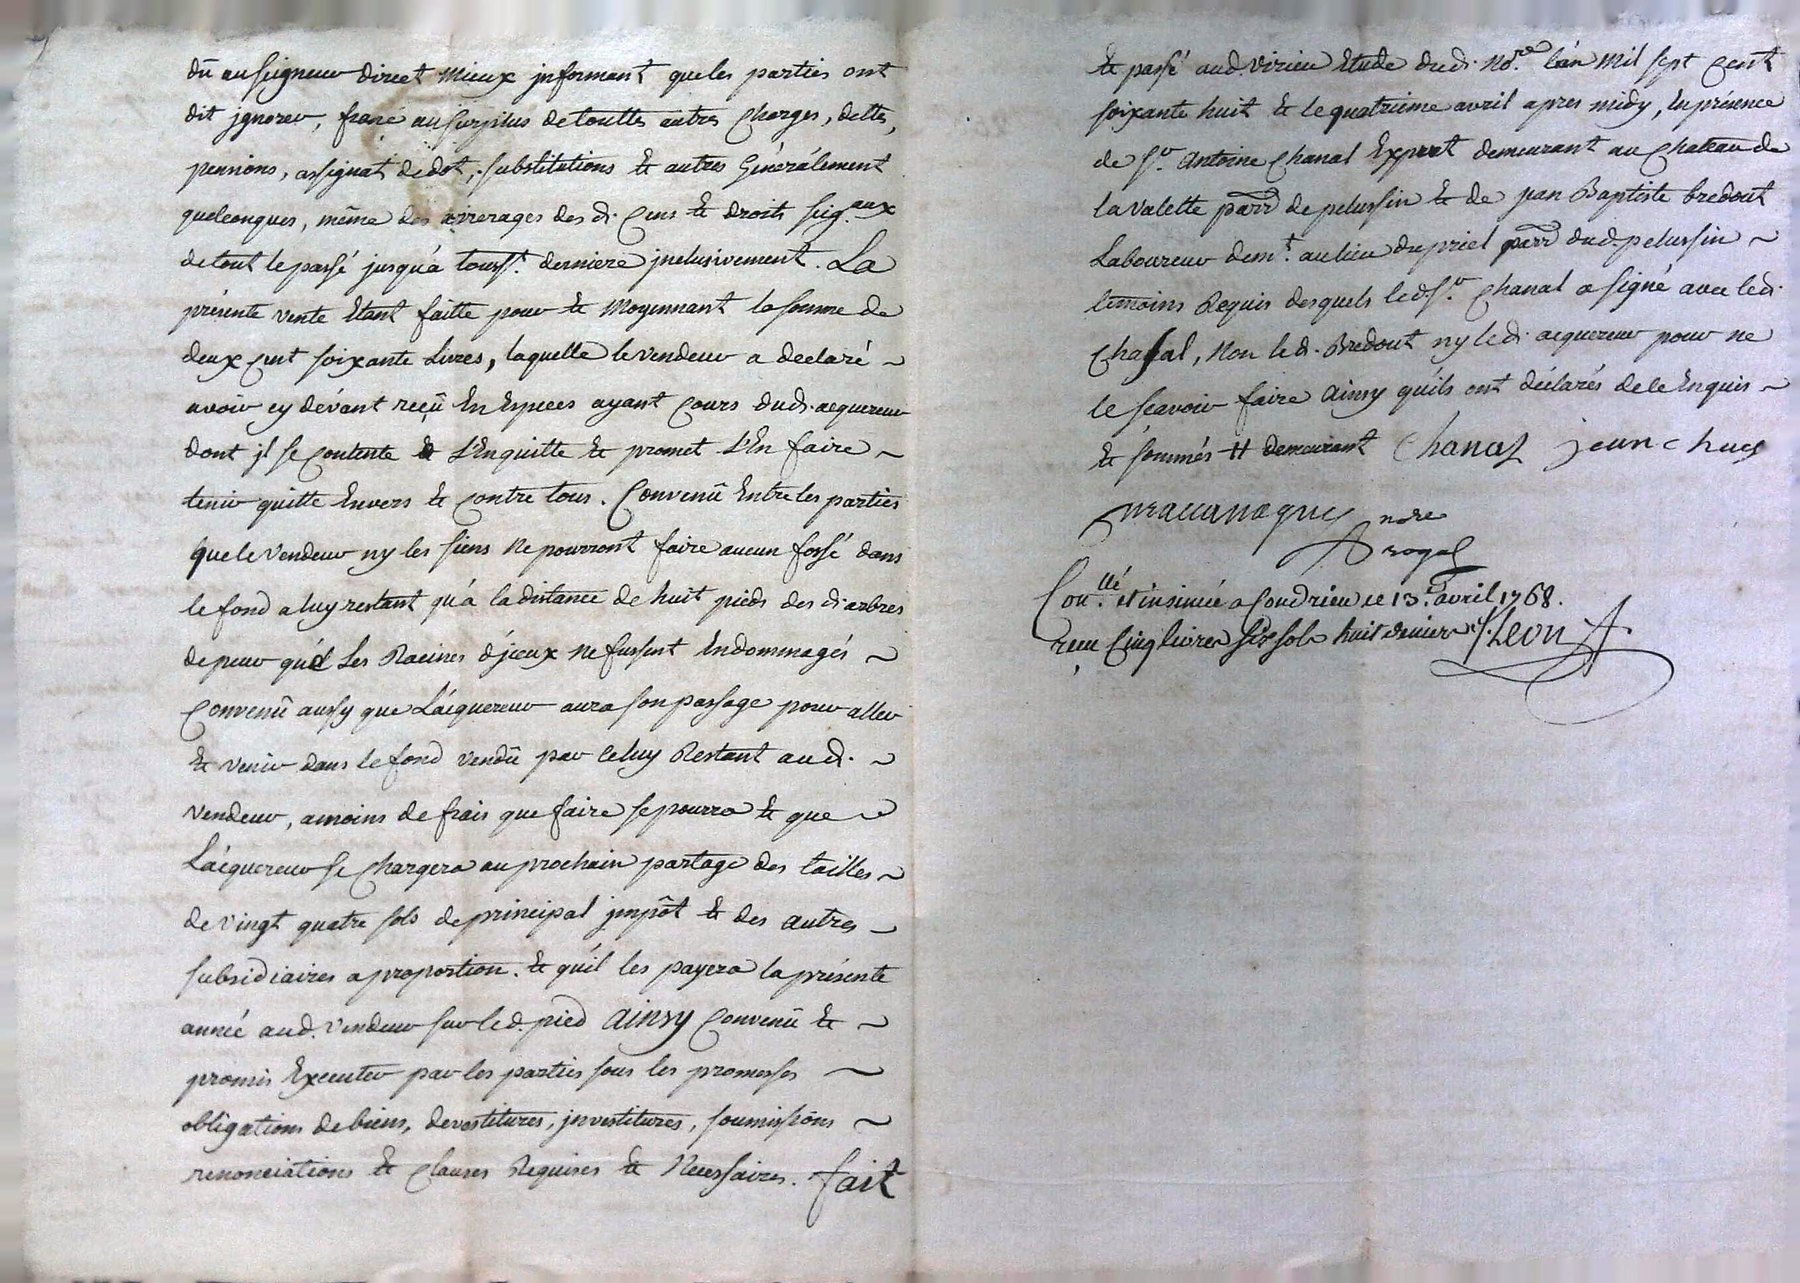 dû au seigneur direct mieux jnformant que les parties ont
dit jgnorer, franc au surplus de touttes autres charges, dette,
pensions, assignat de dot, substitutions & autres Généralement
quelconques, même des arrerages des d. cens & droits seig.aux
de tout le passé jusqu'à touss.t derniere jnclusivement. La
présente vente Etant faitte pour & Moyennant la somme de
deux cent soixante Livres, laquelle le vendeur a declaré ~
avoir cy dévant reçû En Espèces ayant cours dud. acquereur
dont jl se contente & L'Enquitte & promet L'En faire ~
tenir quitte Envers & contre tous. Convenû Entre les parties
que le vendeur ny les siens ne pourront faire aucun fossé dans
le fond a luy restant qu'à la distance de huit pieds des d. arbres
de peur qué Les Racines d'jceux ne fussent Endommagés ~
Convenû aussy que L'acquereur aura son passage pour aller
& venir dans le fond vendû par celuy Restant aud. ~
vendeur, a moins de frais que faire se pourra & que ~
L'acquereur se chargera au prochain partage des tailles ~
de vingt quatre sols de principal jmpôt & des autres ~
subsidiaires a proportion. & qu'il les payera la présente
année aud. vendeur sur led. pied Ainsy Convenû & ~
promis Executer par les parties sous les promesses ~
obligations de biens, devestitures, jnvestitures, soumissions ~
renonciations & clauses Requises & Necessaires. fait
& passé aud. Virieu Etude dud. No.re l'an Mil sept cent
soixante huit & le quatrieme avril apres midy, En présence
de S.r Antoine Chanal Expert demeurant au Chateau de
la Valette parr de pelussin & de jean Baptiste bredout
Laboureur dem.t au lieu du priel parr dud. pelussin ~
témoins Requis desquels led. S.r Chanal a signé avec led.
Chaal, Non led. Bredout ny led. acquereur pour ne
le sçavoir faire Ainsy qu'ils ont déclarés de ce Enquis ~
& sommés # demeurant Chanal jean chaas
ndre
royal
Con.llé et insinué a Condrieu ce 13.e avril 1768.
reçu Cinq livres six sols huit deniers Sleon